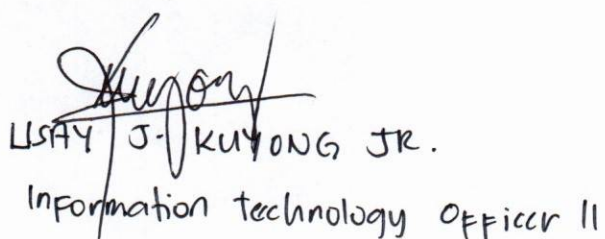 LISAY J. KUYONG JR.
Information technology Officer II